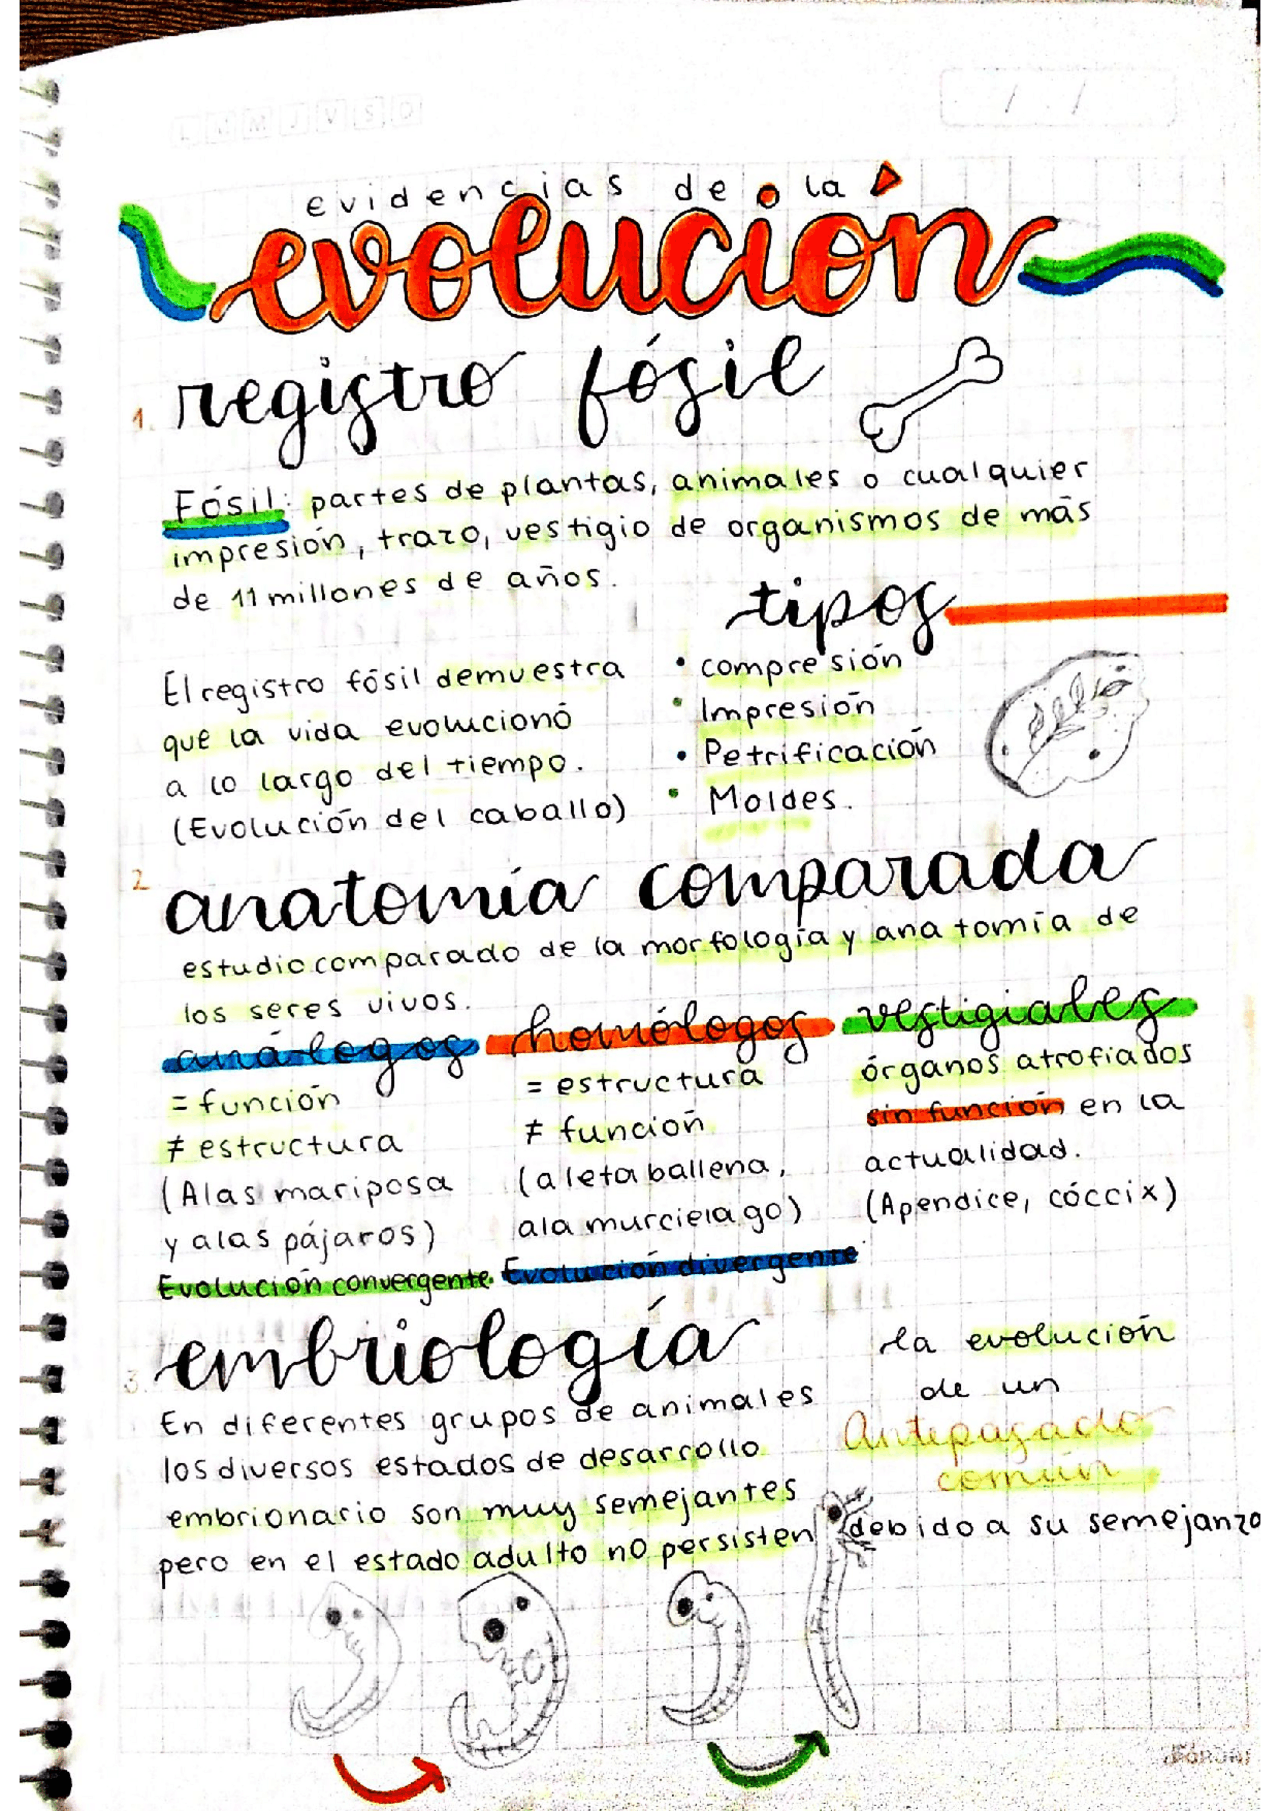 L M M J V S D
/ /
evidencias de la
evolución
1. registro fósil
Fósil: partes de plantas, animales o cualquier
impresión, trazo, vestigio de organismos de más
de 11 millones de años.
El registro fósil demuestra
que la vida evolucionó
a lo largo del tiempo.
(Evolución del caballo)
tipos
• compresión
• Impresión
• Petrificación
• Moldes.
2 anatomía comparada
estudio comparado de la morfología y anatomía de
los seres vivos.
análogos
= función
≠ estructura
(Alas mariposa
y alas pájaros)
Evolución convergente.
homólogos
= estructura
≠ función
(aleta ballena,
ala murcielago)
Evolución divergente
vestigiales
órganos atrofiados
sin función en la
actualidad.
(Apendice, cóccix)
3. embriología
En diferentes grupos de animales
los diversos estados de desarrollo
embrionario son muy semejantes
pero en el estado adulto no persisten
la evolución
de un
Antepasado
común
debido a su semejanza